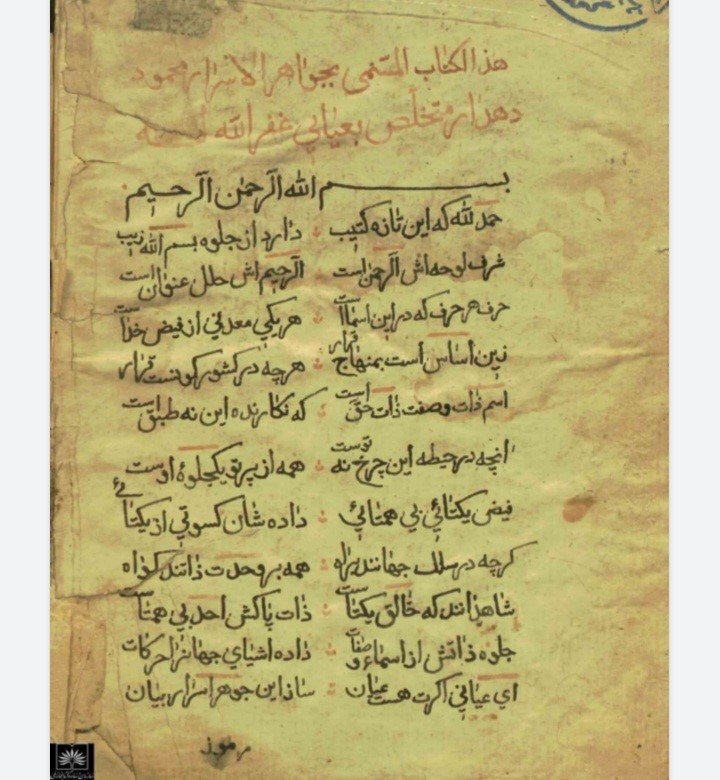 هذا الکتاب المسمی بجواهر الاسرار محمود
دهدار متخلص بعیانی غفر الله
بسم الله الرحمن الرحیم
حمد لله که این تازه کتیب دارد از جلوه بسم الله زیب
شرف لوحه اش الرحمن است الرحیم اش حلل عنوان است
حرف هر حرف که در این اسماست هر یکی معدنی از فیض خداست
زین اساس است بمنهاج قرار هرچه در کشور کونست قرار
اسم ذات وصفت ذات حق است که نگارنده این نه طبق است
انچه در حیطه این چرخ نه توست همه از پرتو یکجلوهٔ اوست
فیض یکتائی بی همتائی داده شان کسوتی از یکتائی
کرچه در سلک جهانند براه همه بر وحدت ذاتند کواه
شاهدانند که خالق یکتاست ذات پاکش احد بی همتاست
جلوه ذاتش از اسماء و صفات داده اشیای جهانرا حرکات
ای عیانی اکرت هست عیان ساز این جوهر اسرار بیان
رموز